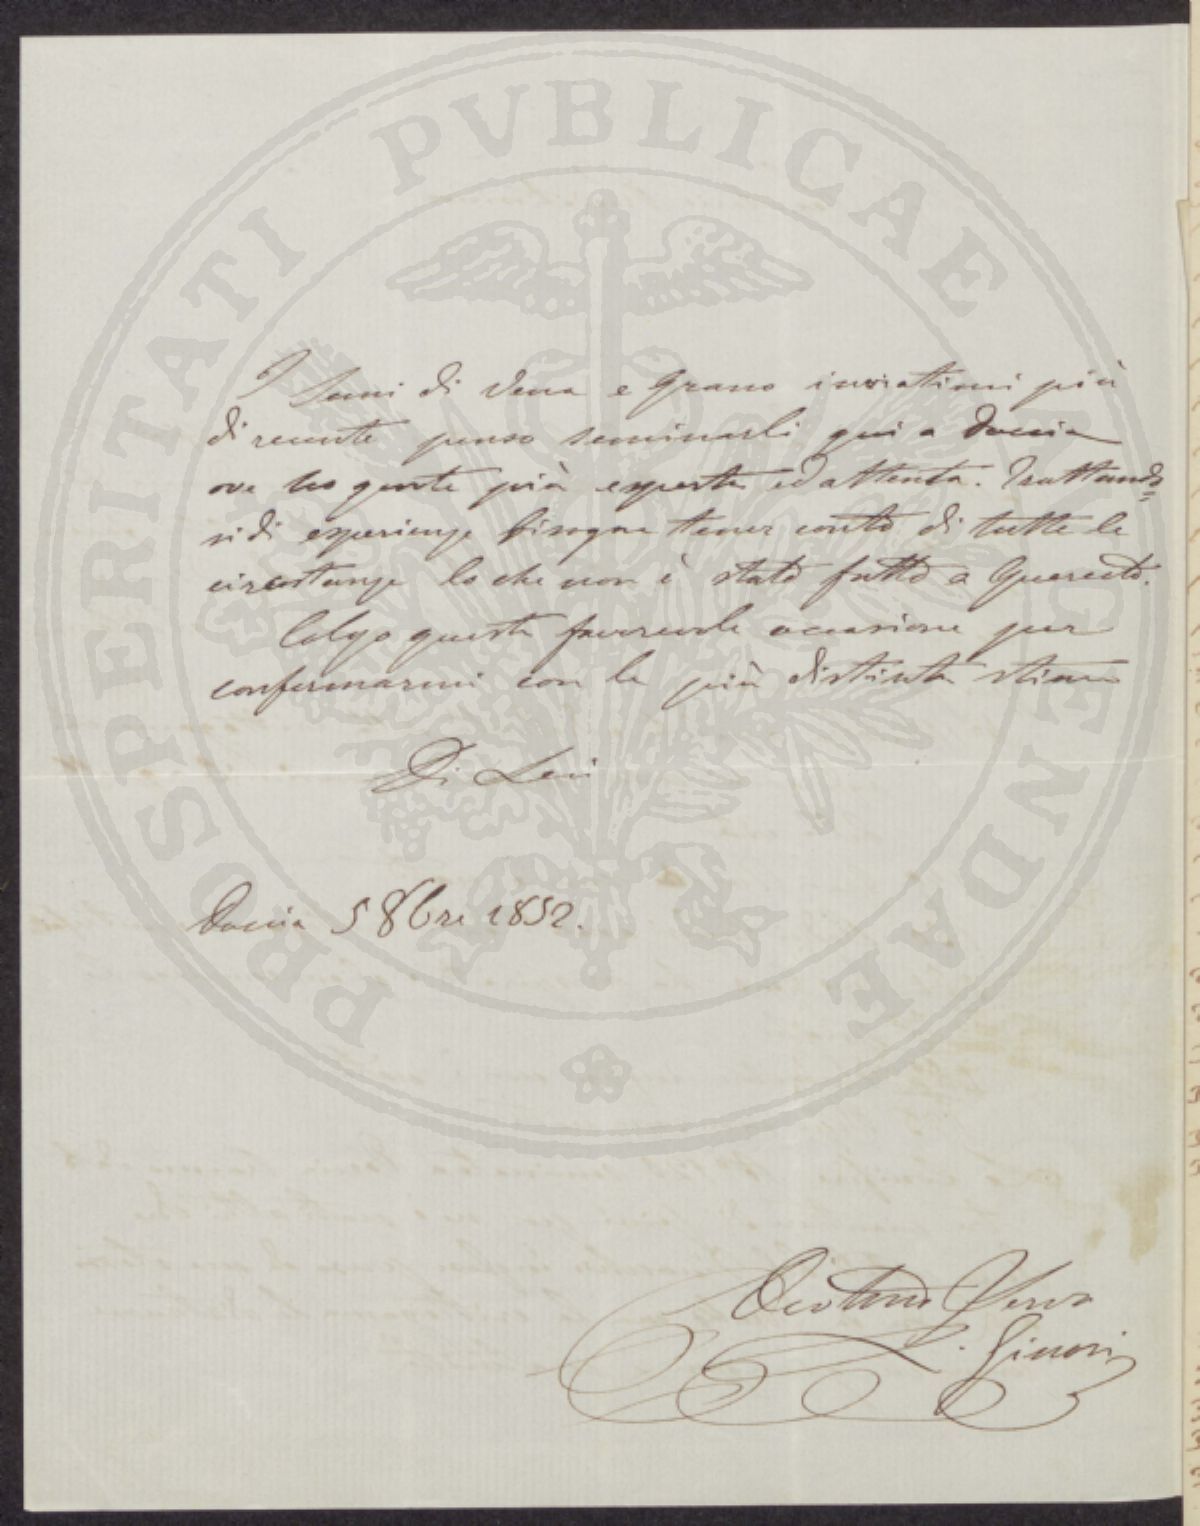 PROSPERITATI PVBLICAE AVGENDAE
I Semi di Vena e Grano inviatimi più
di recente penso seminarli qui a Doccia
ove ho gente più esperta ed attenta. Trattando=
si di esperienze bisogna tener conto di tutte le
circostanze lo che non è stato fatto a Querceto.
Colgo questa favorevole occasione per
confermarmi con la più distinta stima
Di Lei
Doccia 5 8bre 1852.
Devotmo Servo
L. Ginori